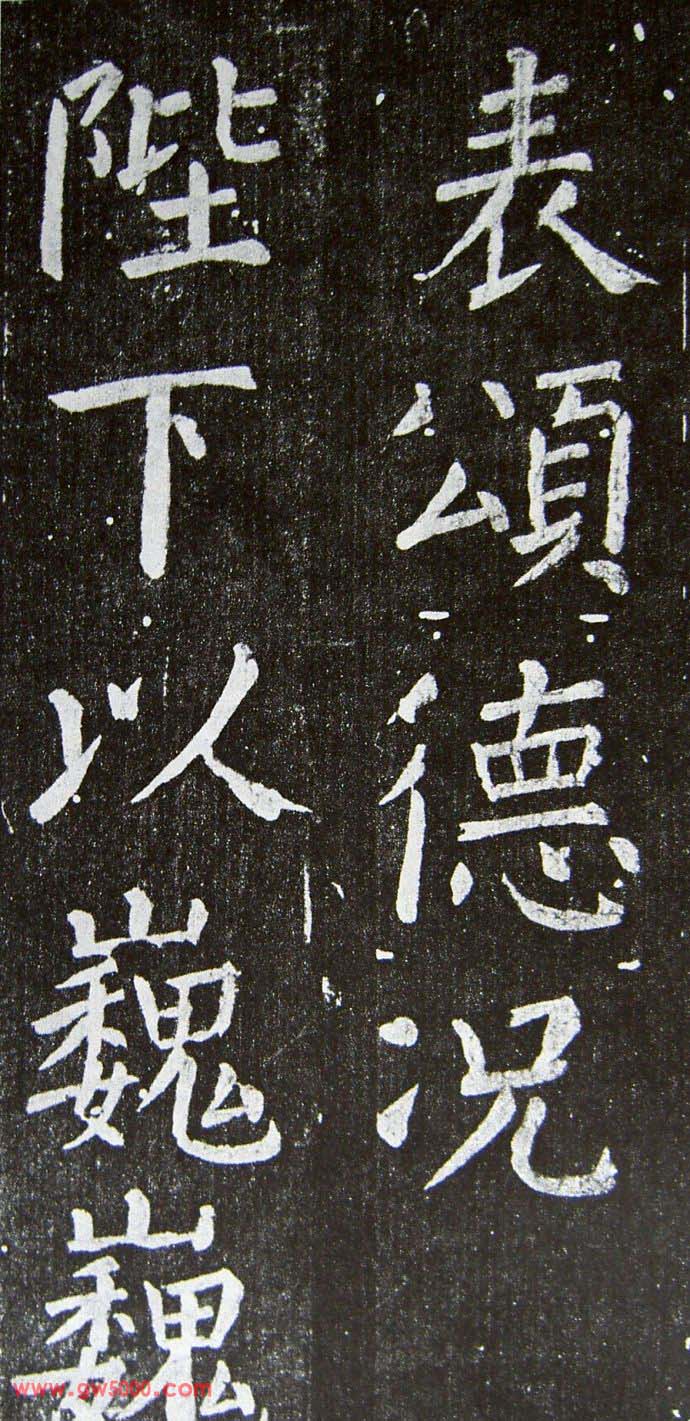 表頌德况
陛下以巍巍
www.gw5000.com